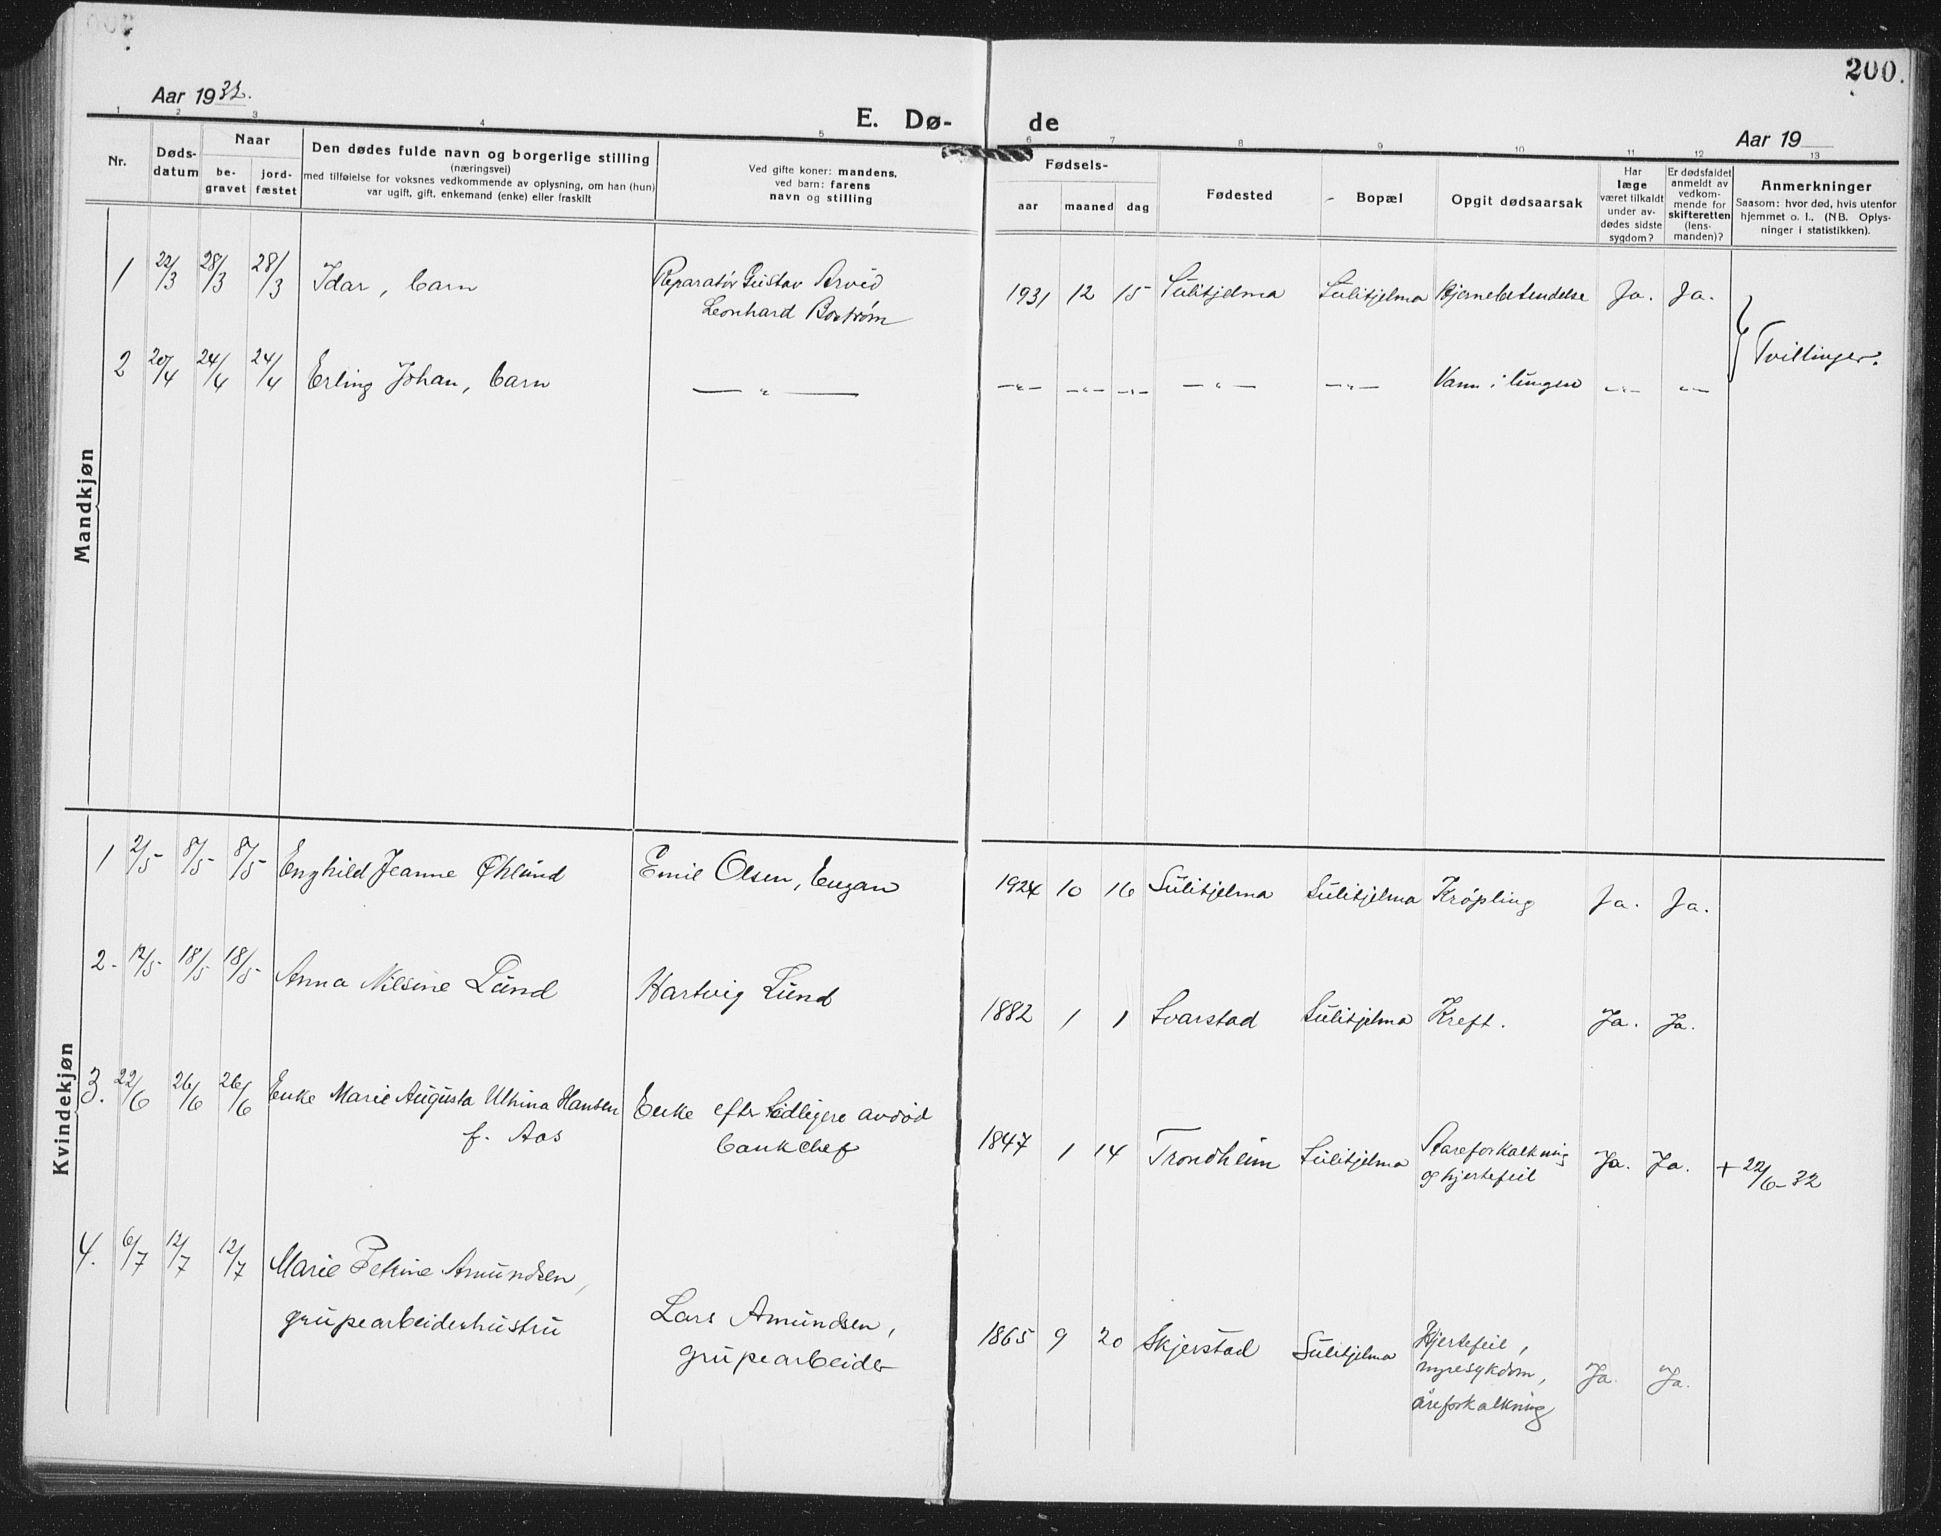 200.
Aar 1932.
E. Dø- de
Aar 19
1 2 3 4 5 6 7 8 9 10 11 12 13
Nr.
Døds-
datum
Naar
be-
gravet
jord-
fæstet
Den dødes fulde navn og borgerlige stilling
(næringsvei)
med tilføielse for voksnes vedkommende av oplysning, om han (hun)
var ugift, gift, enkemand (enke) eller fraskilt
Ved gifte koner: mandens,
ved barn: farens
navn og stilling
Fødsels-
aar maaned dag
Fødested
Bopæl
Opgit dødsaarsak
Har
læge
været tilkaldt
under av-
dødes sidste
sygdom?
Er dødsfaldet
anmeldt av
vedkom-
mende for
skifteretten
(lens-
manden)?
Anmerkninger
Saasom: hvor død, hvis utenfor
hjemmet o. l., (NB. Oplys-
ninger i statistikken).
Mandkjøn
1 22/3 28/3 28/3 Idar, barn Reparatør Gustav Arvid
Leonhard Bostrøm
1931 12 15 Sulitjelma Sulitjelma Hjernebetendelse Ja. Ja.
} Tvillinger.
2 20/4 24/4 24/4 Erling Johan, barn — " —
— " — — " — — " — — " — — " — Vann i lungen — " — — " —
Kvindekjøn
1 2/5 8/5 8/5 Enghild Jeanne Øhlund Emil Olsen, Eugan
1924 10 16 Sulitjelma Sulitjelma Krøpling Ja. Ja.
2. 12/5 18/5 18/5 Anna Nilsine Lund Hartvig Lund
1882 1 1 Svarstad Sulitjelma Kreft. Ja. Ja.
3. 22/6 26/6 26/6 Enke Marie Augusta Hansen Enke efter tidligere avdød
f. Aas bankchef
1847 1 14 Trondheim Sulitjelma Åreforkalkning
og hjertefeil Ja. Ja. + 22/6-32
4. 6/7 12/7 12/7 Marie Petrine Amundsen,
grupearbeiderhustru
Lars Amundsen,
grupearbeider
1865 9 20 Skjerstad Sulitjelma Hjertefeil,
nyresykdom,
åreforkalkning Ja. Ja.